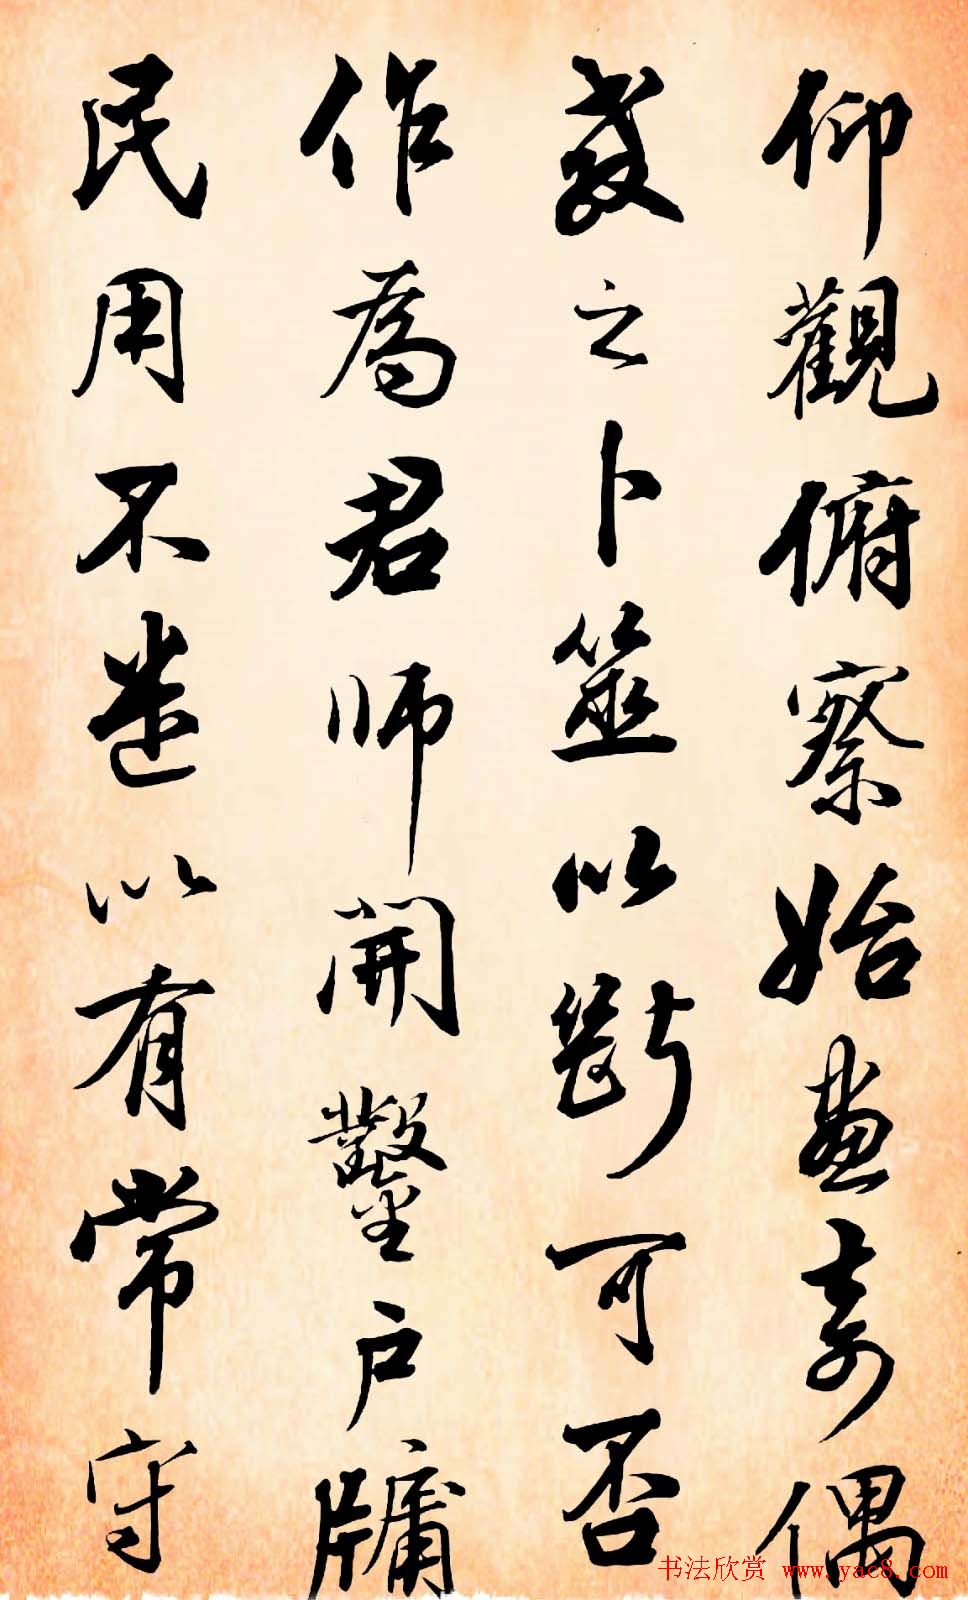 仰觀俯察始畫奇偶
教之卜筮以斷可否
作為君师開鑿户牖
民用不迷以有常守
书法欣赏 www.yac8.com